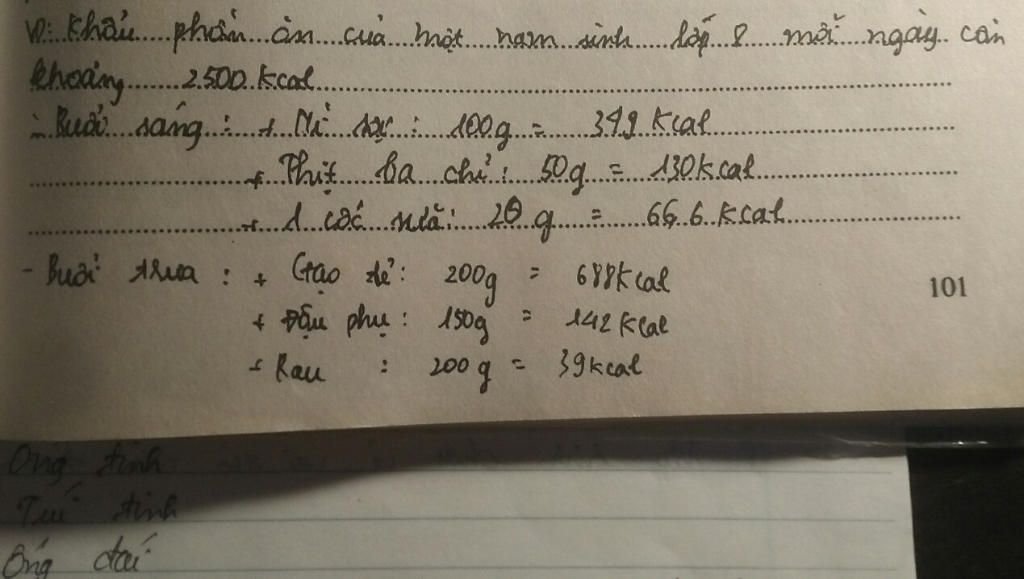 VD: Khẩu phần ăn của một nam sinh lớp 8 mỗi ngày cần
khoảng 2500 Kcal
- Buổi sáng : + Mì sợi : 100g = 349 Kcal
+ Thịt ba chỉ : 50g = 130kcal
+ 1 cốc sữa: 20 g = 66.6 Kcal
- Buổi trưa : + Gạo tẻ: 200g = 688Kcal
+ Đậu phụ : 150g = 142 Kcal
+ Rau : 200 g = 39kcal
101
Ống tính
Túi tinh
Ống đái